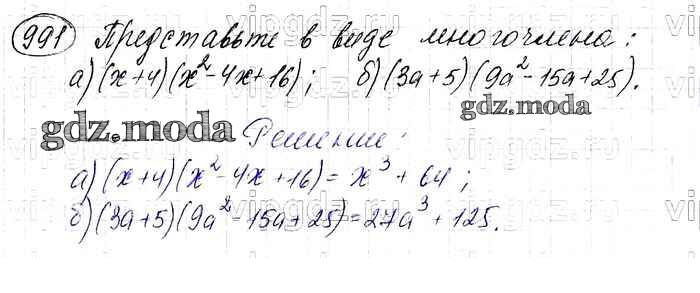 991 Представьте в виде многочлена:
а) (x+4)(x²-4x+16); б) (3a+5)(9a²-15a+25).
gdz.moda
gdz.moda Решение:
а) (x+4)(x²-4x+16)=x³+64;
б) (3a+5)(9a²-15a+25)=27a³+125.